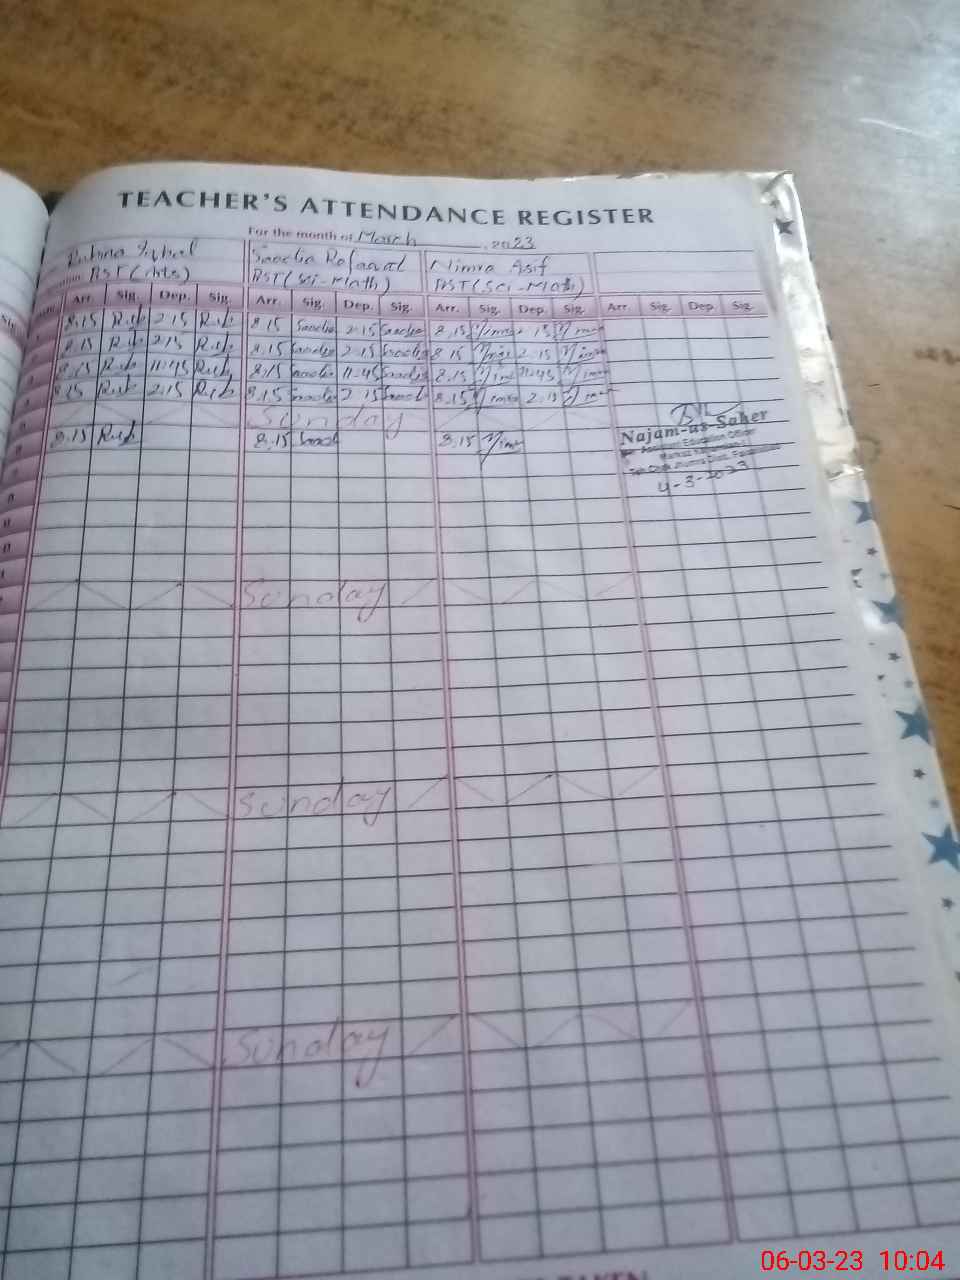 TEACHER'S ATTENDANCE REGISTER
For the month of March 2023
Rubina Saadia Nimra Asif
PST (Arts) PST (Sci-Math) PST (Sci-Math)
Arr. Sig. Dep. Sig. Arr. Sig. Dep. Sig. Arr. Sig. Dep. Sig. Arr. Sig. Dep. Sig.
8.15 Rub 2.15 Rub 8.15 Saadia 2.15 Saadia 8.15 Nimra 2.15 Nimra
8.15 Rub 2.15 Rub 8.15 Saadia 2.15 Saadia 8.15 Nimra 2.15 Nimra
8.15 Rub 11.45 Rub 8.15 Saadia 11.45 Saadia 8.15 Nimra 11.45 Nimra
8.15 Rub 2.15 Rub 8.15 Saadia 2.15 Saadia 8.15 Nimra 2.15 Nimra
Sunday
8.15 Rub 8.15 Saad 8.15 Nimra
Najam-us-Saher
Assistant Education Officer
Markaz
4-3-2023
Sunday
Sunday
Sunday
06-03-23 10:04